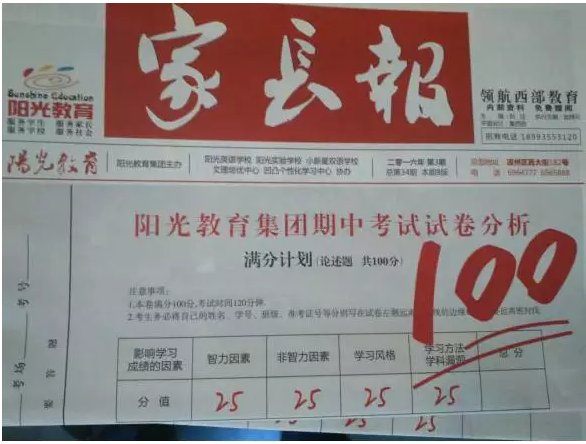 家长報
Sunshine Education
阳光教育
服务学生 服务家长
服务学校 服务社会
领航西部教育
内部资料 免费赠阅
招商电话 18993553120
陽光教育
阳光教育集团主办
阳光英语学校 阳光实验学校 小新星双语学校
文理培优中心 凹凸个性化学习中心 协办
二零一六年 第3期
总第34期 本期8版
电话
阳光教育集团期中考试试卷分析
满分计划(论述题 共100分)
100
注意事项:
1.本卷满分100分,考试时间120分钟.
2.考生务必将自己的姓名、学号、班级、准考证号等分别写在试卷左侧远离
影响学习成绩的因素 智力因素 非智力因素 学习风格 学习方法 学科漏洞 总分
分值 25 25 25 25
考号
考场